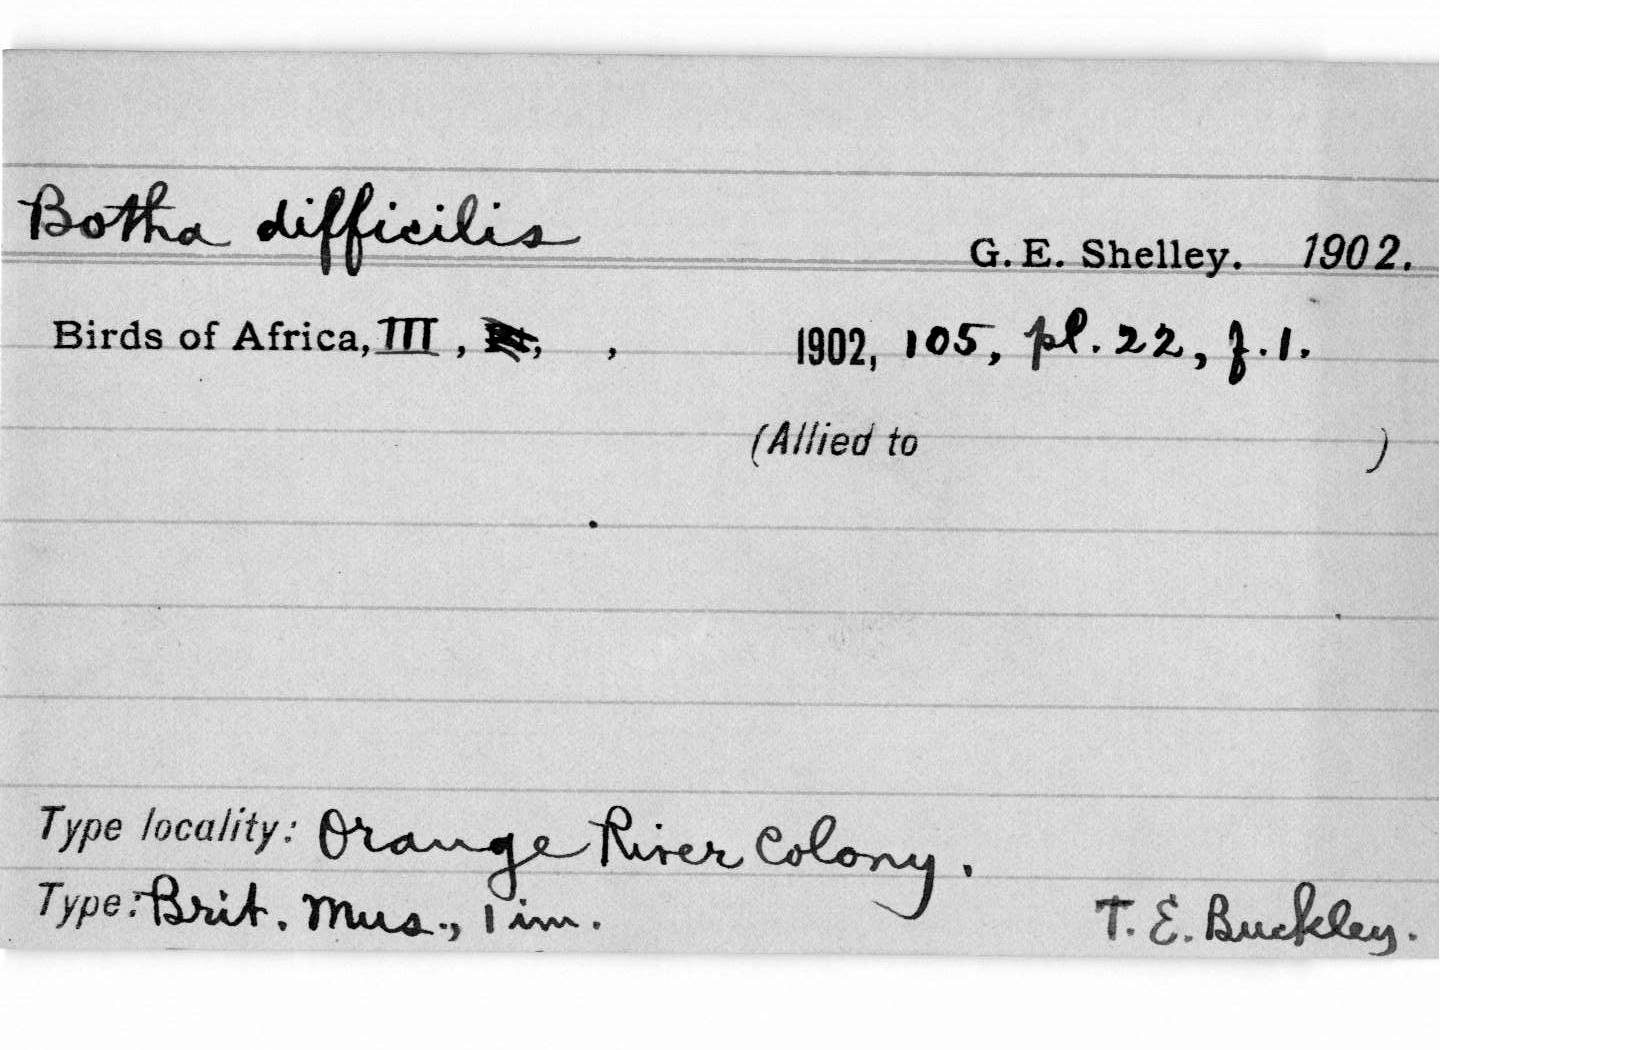 Botha difficilis
G. E. Shelley. 1902.
Birds of Africa, III, , 1902, 105, pl. 22, f. 1.
(Allied to )
Type locality: Orange River Colony.
Type: Brit. Mus., 1 im. T. E. Buckley.